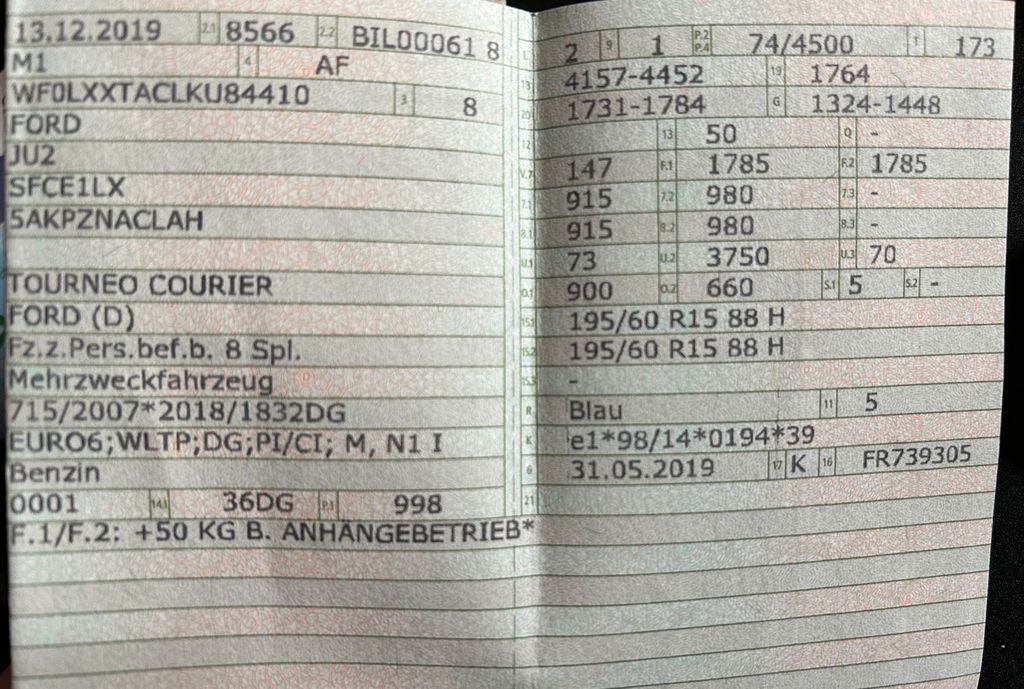 13.12.2019 2.1 8566 2.2 BIL00061 8
M1 4 AF
WF0LXXTACLKU84410 3 8
FORD
JU2
SFCE1LX
5AKPZNACLAH
TOURNEO COURIER
FORD (D)
Fz.z.Pers.bef.b. 8 Spl.
Mehrzweckfahrzeug
715/2007*2018/1832DG
EURO6;WLTP;DG;PI/CI; M, N1 I
Benzin
0001 14.1 36DG P.1 998
F.1/F.2: +50 KG B. ANHÄNGEBETRIEB*
L 2 9 1 P.2 P.4 74/4500 T 173
18 4157-4452 19 1764
20 1731-1784 G 1324-1448
12 13 50 Q -
V.7 147 F.1 1785 F.2 1785
7.1 915 7.2 980 7.3 -
8.1 915 8.2 980 8.3 -
U.1 73 U.2 3750 U.3 70
O.1 900 O.2 660 S.1 5 S.2 -
15.1 195/60 R15 88 H
15.2 195/60 R15 88 H
15.3 -
R Blau 11 5
K e1*98/14*0194*39
6 31.05.2019 17 K 16 FR739305
21